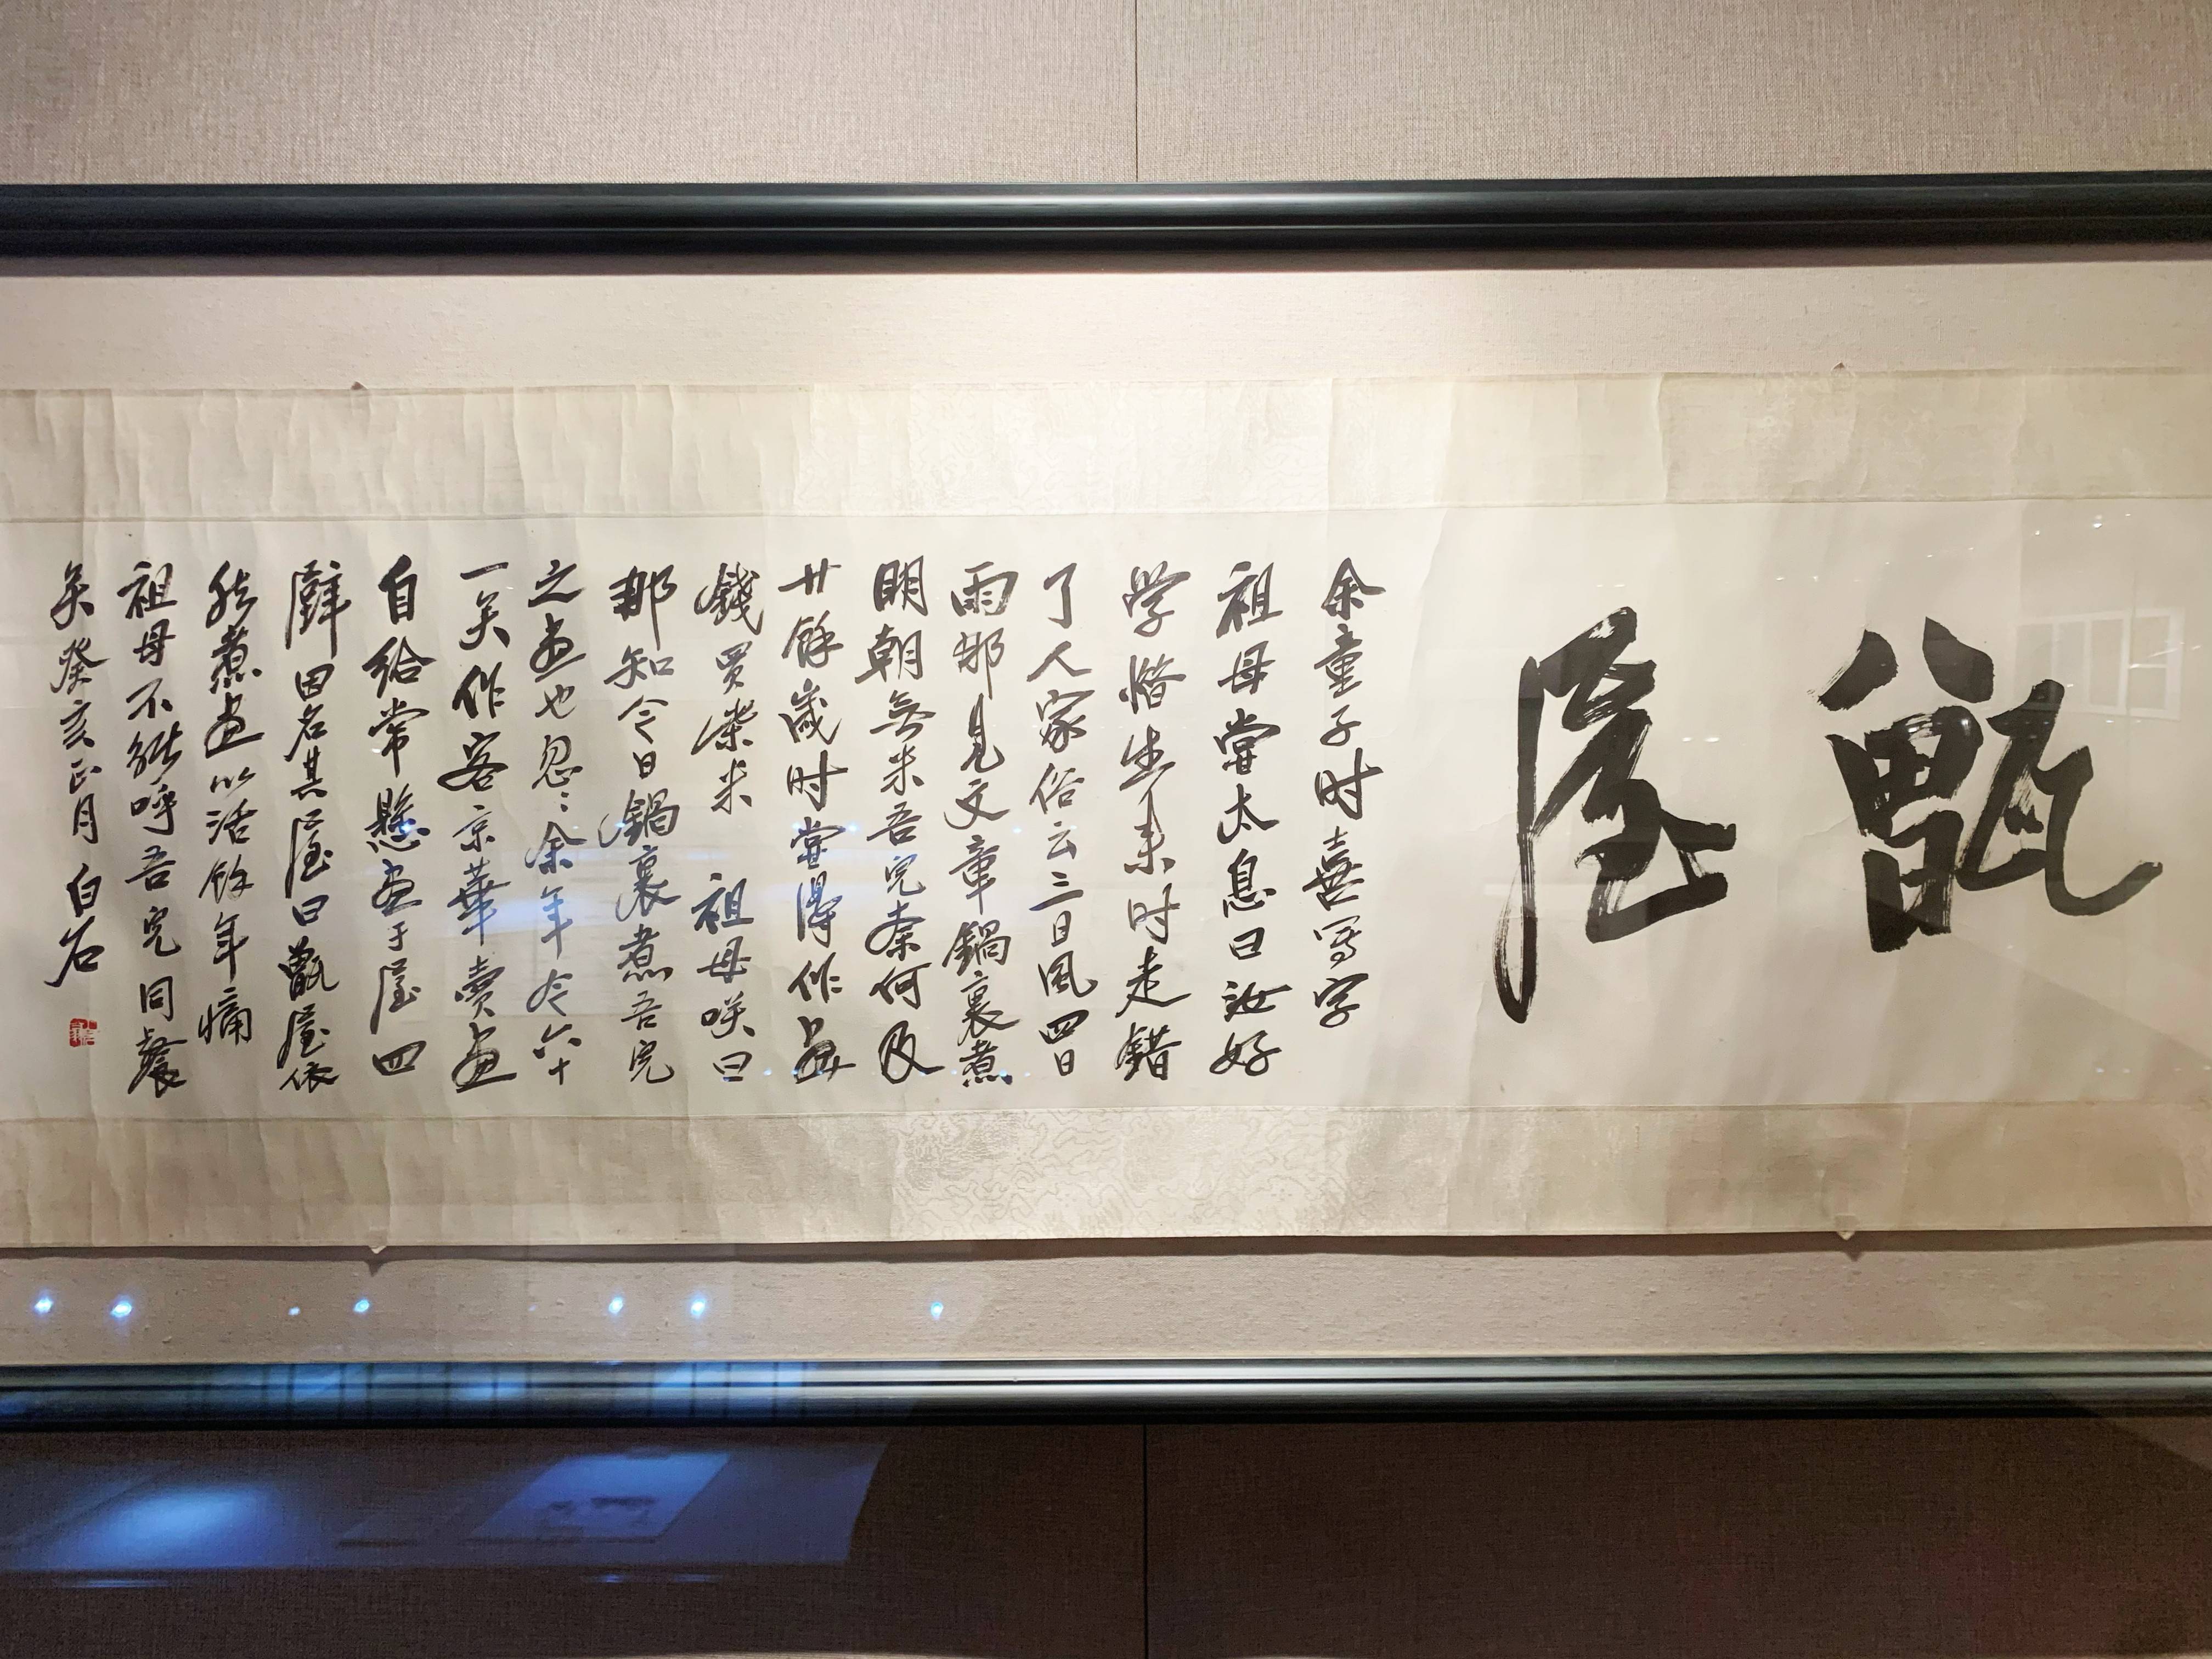 甑屋
余童子时喜写字
祖母尝太息曰汝好
学惜生来时走错
了人家俗云三日风四日
雨那见文章锅里煮
明朝无米吾儿奈何及
廿餘歲时尝得作画
錢買柴米 祖母咲曰
那知今日鍋裏煮吾兒
之画也忽〻余年今六十
一矣作客京華賣画
自给常懸画于屋四
壁因名其屋曰甑屋依
然煮画以活餘年痛
祖母不能呼吾兒同餐
矣癸亥正月 白石